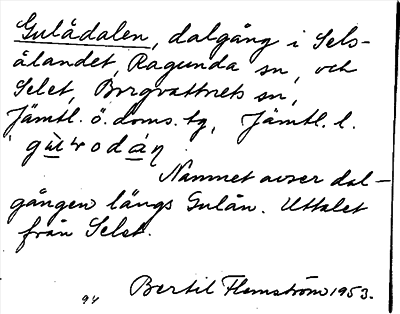 Gulådalen, dalgång i Sels-
ålandet, Ragunda sn, och
Selet, Borgvattnets sn,
Jämtl. ö. doms. tg, Jämtl. l.
Namnet avser dal-
gången längs Gulån. Uttalet
från Selet.
Bertil Flemström 1953.
94